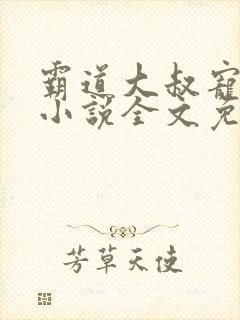 霸道大叔寵
小說全文免
芳草天使